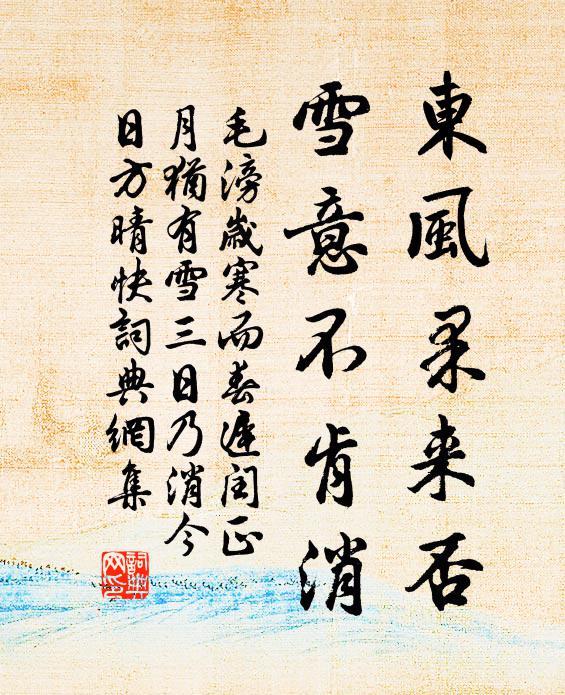 東風果来否
雪意不肯消
毛滂歲寒而春遲閏正
月猶有雪三日乃消今
日方晴快詞典網集